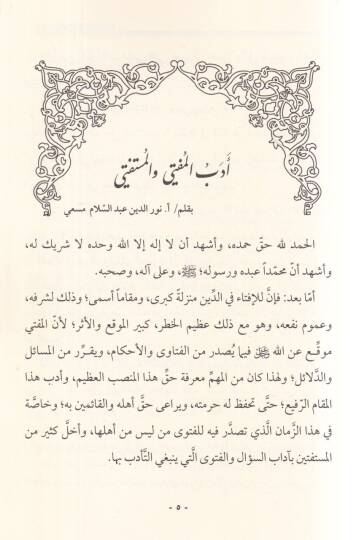 أَدَبُ المُفْتِي والمُسْتفتِي
بقلم/ أ. نور الدين عبد السّلام مسعي
الحمد لله حقّ حمده، وأشهد أن لا إله إلا الله وحده لا شريك له،
وأشهد أنّ محمّداً عبده ورسوله؛ ﷺ، وعلى آله، وصحبه.
أمّا بعد: فإنَّ للإفتاء في الدِّين منزلةً كبرى، ومقاماً أسمى؛ وذلك لشرفه،
وعموم نفعه، وهو مع ذلك عظيم الخطر، كبير الموقع والأثر؛ لأنَّ المفتي
موقِّع عن الله ﷻ فيما يُصدر من الفتاوى والأحكام، ويقـرِّر من المسائل
والدَّلائل؛ ولهذا كان من المهمّ معرفة حقِّ هذا المنصب العظيم، وأدب هذا
المقام الرَّفيع؛ حتَّى تحفظ له حرمته، ويراعى حقُّ أهله والقائمين به؛ وخاصَّة
في هذا الزَّمان الَّذي تصدَّر فيه للفتوى من ليس من أهلها، وأخلَّ كثير من
المستفتين بآداب السؤال والفتوى الَّتي ينبغي التَّأدب بها.
- ٥ -